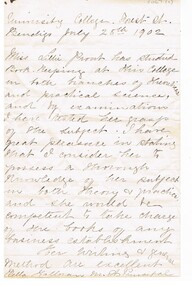 University College, Forest St.
Bendigo July 25th 1902
Miss Lillie Prout has studied
Book Keeping at this College
in both branches of theory
and practical science,
and by examination
I have tested her grasp
of the subject. I have
great pleasure in stating
that I consider her to
possess a thorough
knowledge of her subject
in both theory & practice
and she would be
competent to take charge
of the books of any
business establishment
Her writing &
method are excellent